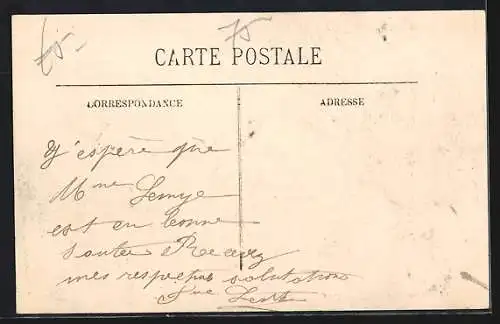 75
CARTE POSTALE
CORRESPONDANCE
ADRESSE
J'espère que
Mme
est en bonne
Santée Recevez
mes respectus salutation